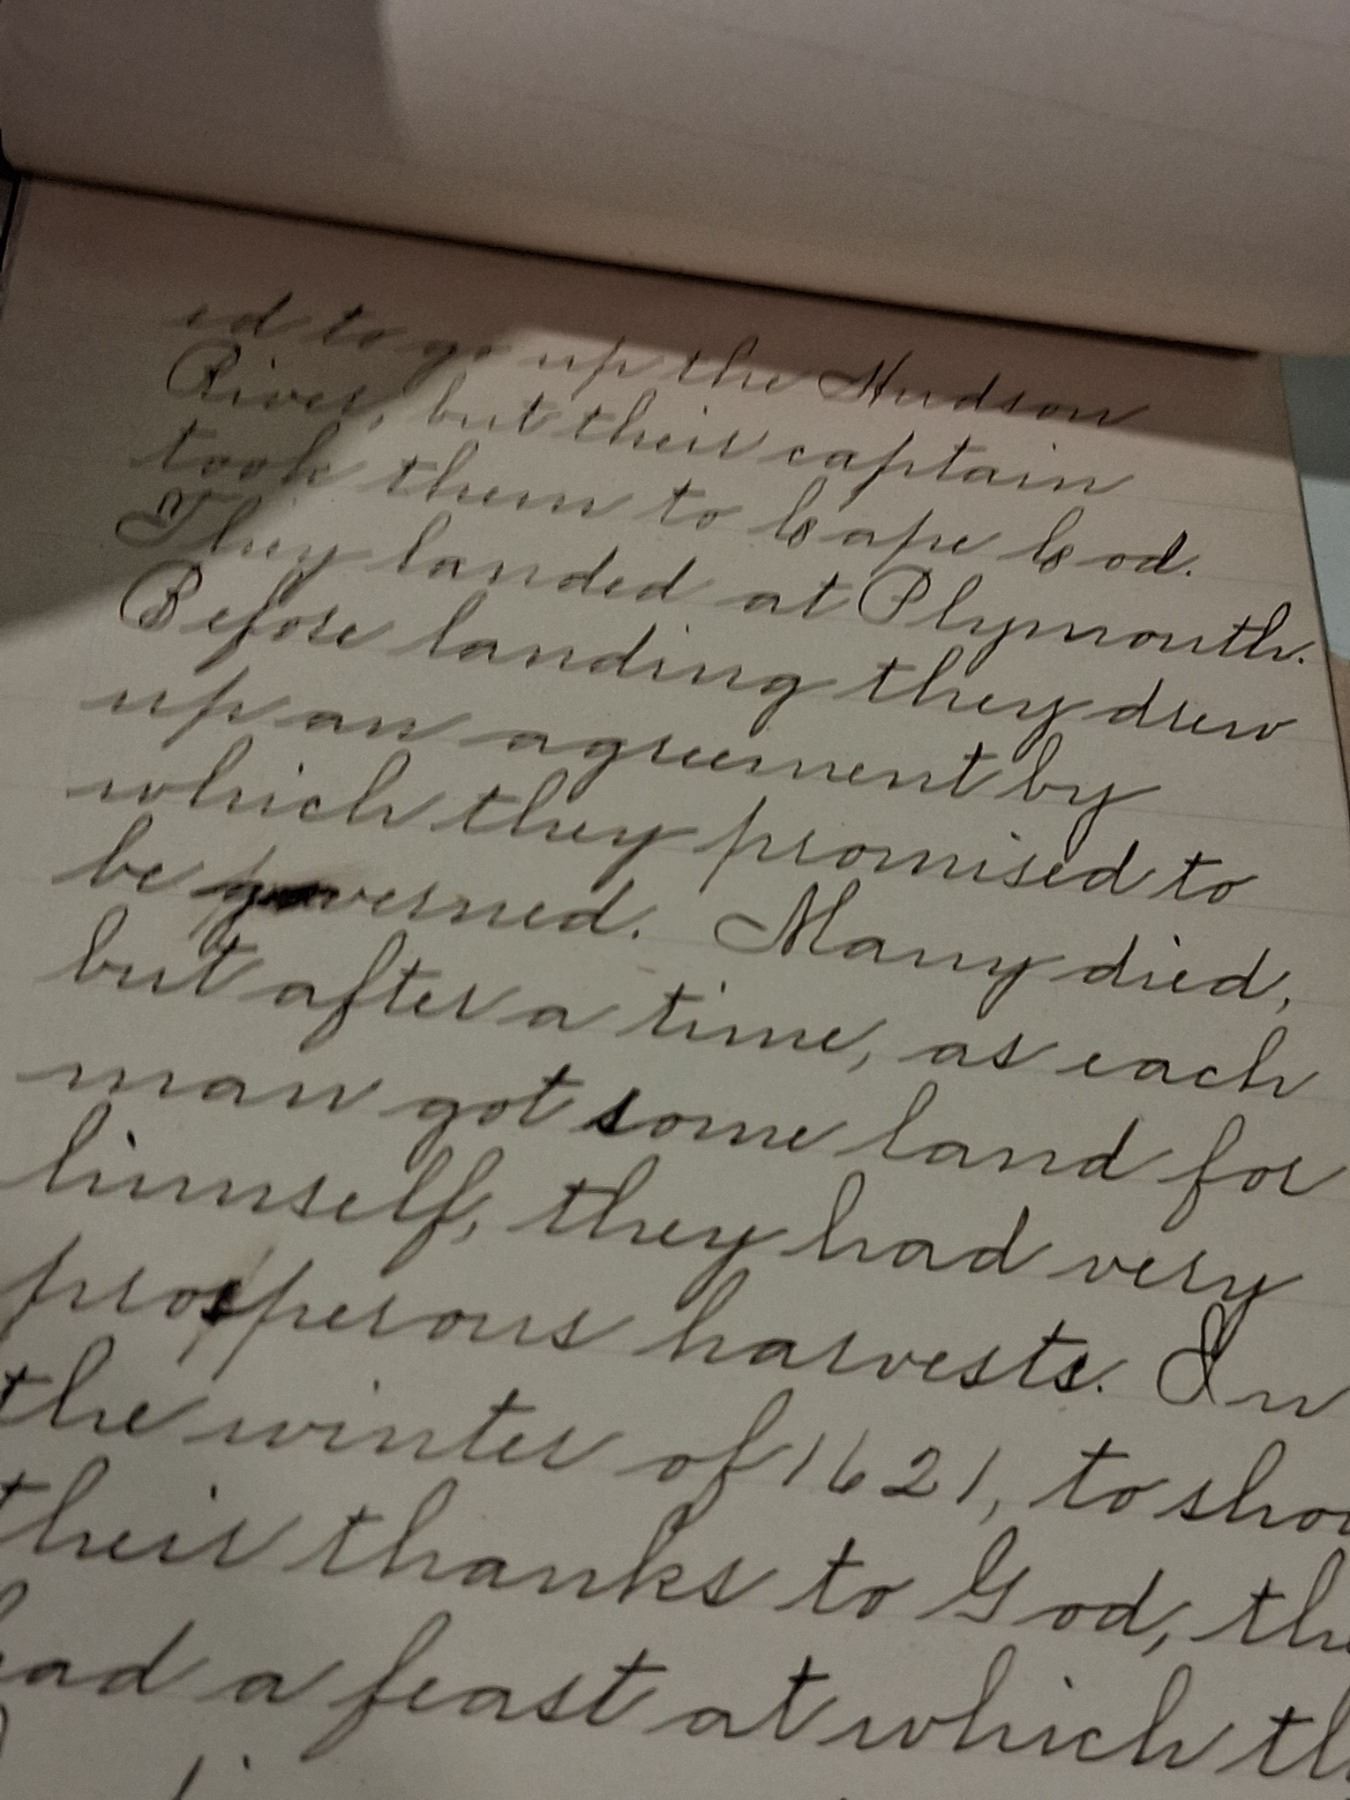 ed to go up the Hudson
River, but their captain
took them to Cape Cod.
They landed at Plymouth.
Before landing they drew
up an agreement by
which they promised to
be governed. Many died,
but after a time, as each
man got some land for
himself, they had very
prosperous harvests. In
the winter of 1621, to show
their thanks to God, the
had a feast at which th